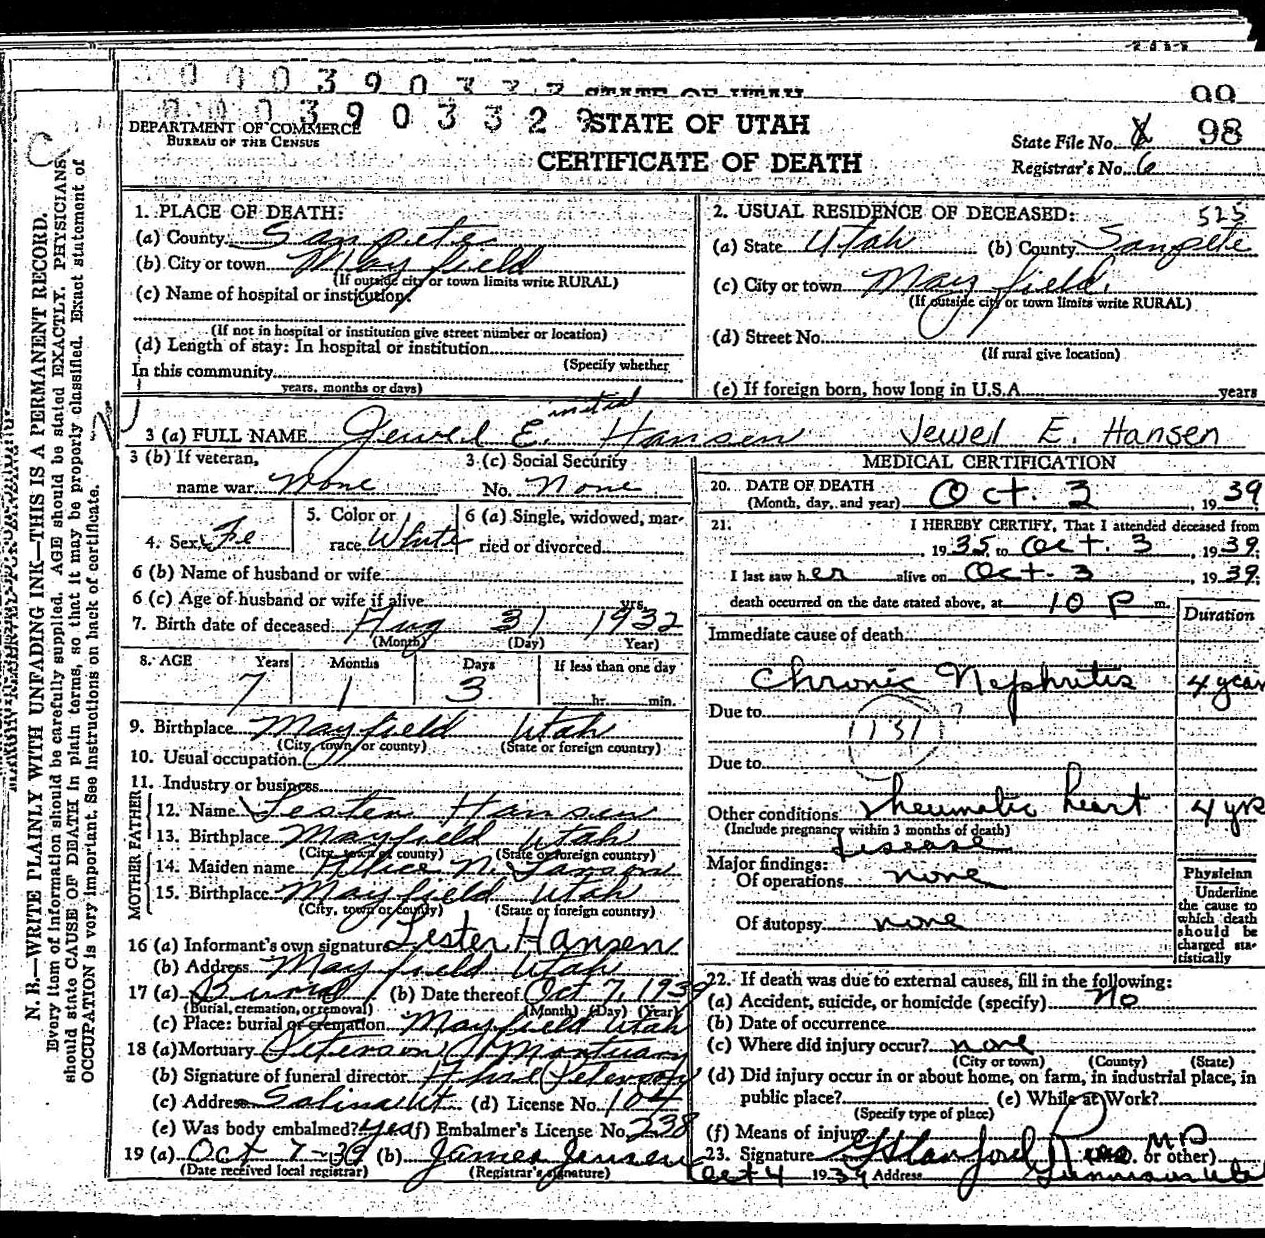 0003903329
STATE OF UTAH
98
DEPARTMENT OF COMMERCE
BUREAU OF THE CENSUS
CERTIFICATE OF DEATH
State File No.
Registrar's No. 6
C
N. B.—WRITE PLAINLY WITH UNFADING INK—THIS IS A PERMANENT RECORD.
Every item of information should be carefully supplied. AGE should be stated EXACTLY. PHYSICIANS
should state CAUSE OF DEATH in plain terms, so that it may be properly classified. Exact statement of
OCCUPATION is very important. See instructions on back of certificate.
1. PLACE OF DEATH:
(a) County Sanpete
(b) City or town Mayfield
(If outside city or town limits write RURAL)
(c) Name of hospital or institution:
(If not in hospital or institution give street number or location)
(d) Length of stay: In hospital or institution
(Specify whether
In this community
years, months or days)
2. USUAL RESIDENCE OF DECEASED: 525
(a) State Utah (b) County Sanpete
(c) City or town Mayfield
(If outside city or town limits write RURAL)
(d) Street No.
(If rural give location)
(e) If foreign born, how long in U.S.A. years
initial
3 (a) FULL NAME Jewel E. Hansen Jewel E. Hansen
3 (b) If veteran,
name war None
3 (c) Social Security
No. None
4. Sex Fe
5. Color or
race White
6 (a) Single, widowed, mar-
ried or divorced
6 (b) Name of husband or wife
6 (c) Age of husband or wife if alive yrs.
7. Birth date of deceased Aug 31 1932
(Month) (Day) Year)
8. AGE Years Months Days If less than one day
7 1 3 hr. min.
9. Birthplace Mayfield Utah
(City, town, or county) (State or foreign country)
10. Usual occupation
11. Industry or business
FATHER
12. Name Lester Hansen
13. Birthplace Mayfield Utah
(City, town or county) (State or foreign country)
MOTHER
14. Maiden name Allice N.
15. Birthplace Mayfield Utah
(City, town or county) (State or foreign country)
16 (a) Informant's own signature Lester Hansen
(b) Address Mayfield Utah
17 (a) Burial (b) Date thereof Oct 7, 1939
(Burial, cremation, or removal) (Month) (Day) (Year)
(c) Place: burial or cremation Mayfield Utah
18 (a) Mortuary Peterson Mortuary
(b) Signature of funeral director Peterson
(c) Address Salina Ut. (d) License No. 104
(e) Was body embalmed? yes (f) Embalmer's License No. 238
19 (a) Oct 7-39 (b) James Jensen
(Date received local registrar) (Registrar's signature)
MEDICAL CERTIFICATION
20. DATE OF DEATH
(Month, day, and year) Oct. 3, 1939
21. I HEREBY CERTIFY, That I attended deceased from
, 1935 to Oct. 3, 1939;
I last saw her alive on Oct. 3, 1939;
death occurred on the date stated above, at 10 P m.
Duration
Immediate cause of death
Chronic Nephritis 4 years
Due to
131 ?
Due to
Other conditions rheumatic heart 4 yrs
(Include pregnancy within 3 months of death)
disease
Major findings:
Of operations none
Of autopsy none
Physician
Underline
the cause to
which death
should be
charged sta-
tistically
22. If death was due to external causes, fill in the following:
(a) Accident, suicide, or homicide (specify) No
(b) Date of occurrence
(c) Where did injury occur? none
(City or town) (County) (State)
(d) Did injury occur in or about home, on farm, in industrial place, in
public place? (e) While at Work?
(Specify type of place)
(f) Means of injury
23. Signature G Stanford Rees M.D.
(M.D. or other)
Oct 4 1939 Address Gunnison Utah